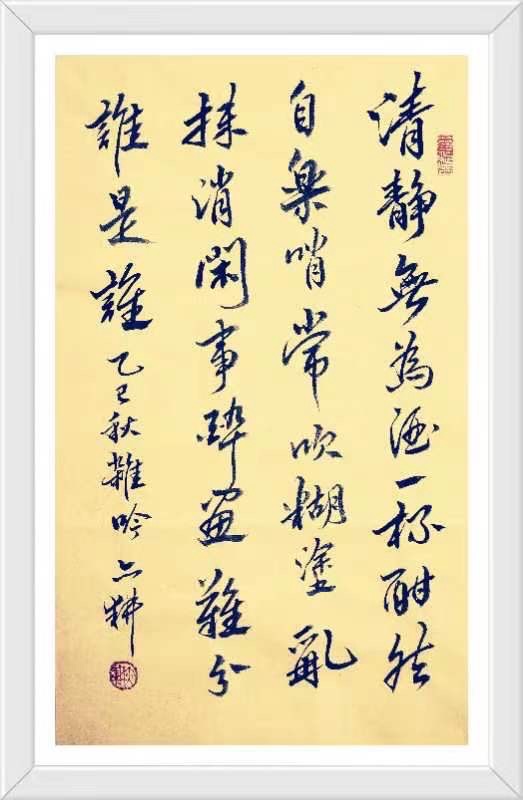 清靜無為酒一杯酣然
自樂哨常吹糊塗亂
抹消閑事醉畫難分
誰是誰 乙巳秋雜吟